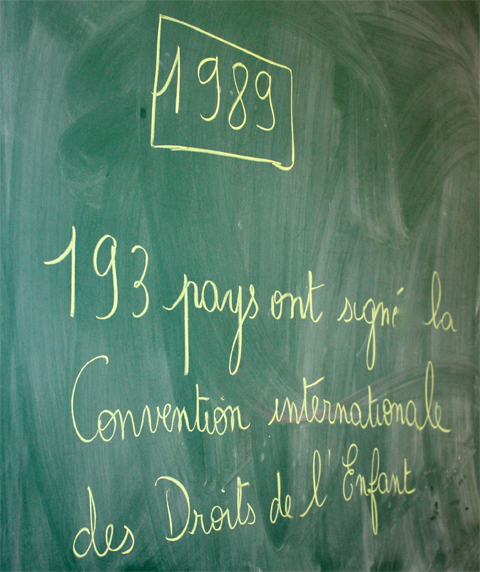 1989
193 pays ont signé la
Convention internationale
des Droits de l'Enfant